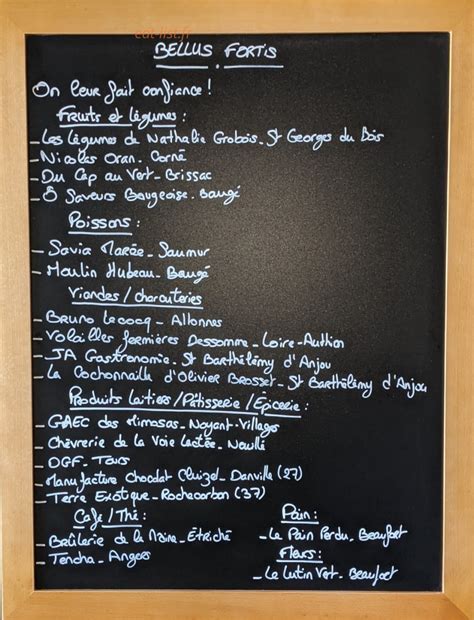 eat-list.fr
BELLUS FORTIS
On leur fait confiance !
Fruits et légumes :
- Les légumes de Nathalie Grobois - St Georges du Bois
- Nicolas Oran - Corné
- Du Cap au Vert - Brissac
- Ô Saveurs Baugeoise - Baugé
Poissons :
- Savia Marée - Saumur
- Moulin Hubeau - Baugé
Viandes / charcuteries
- Bruno Lecocq - Allonnes
- Volailles fermières Dessomme - Loire-Authion
- JA Gastronomie - St Barthélémy d'Anjou
- La Cochonnaille d'Olivier Brosset - St Barthélémy d'Anjou
Produits laitiers / Pâtisserie / Epicerie :
- GAEC des Mimosas - Noyant-Villages
- Chèvrerie de la Voie Lactée - Neuillé
- DGF - Tours
- Manufacture Chocolat Cluizel - Danville (27)
- Terre Exotique - Rochecorbon (37)
Café / Thé :
- Brûlerie de la Maine - Étriché
- Tencha - Angers
Pain :
- Le Pain Perdu - Beaufort
Fleurs :
- Le Lutin Vert - Beaufort